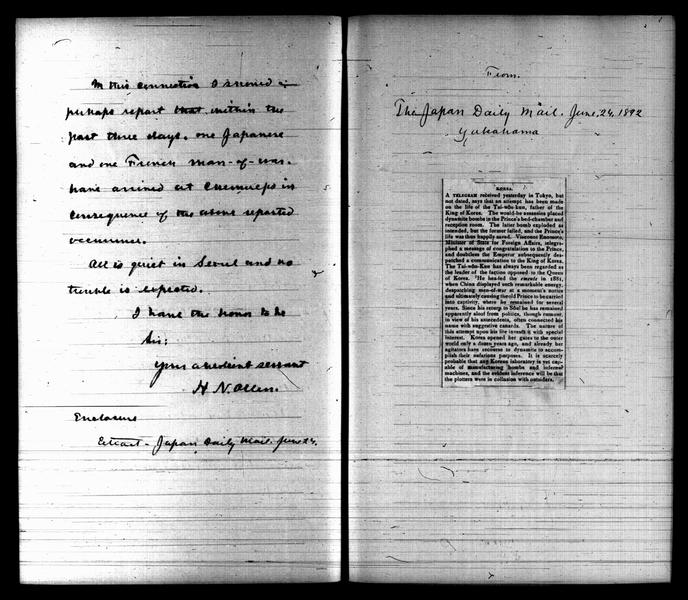 In this connection I should
perhaps report that within the
past three days, one Japanese
and one French man-of-war.
have arrived at Chemulpo in
consequence of the above reported
occurrence.
All is quiet in Seoul and no
trouble is expected.
I have the honor to be
Sir:
Your obedient servant
H N. Allen.
Enclosure
Extract - Japan Daily Mail. June 24.
From.
The Japan Daily Mail. June, 24, 1892
Yokohama
KOREA.
A TELEGRAM received yesterday in Tokyo, but
not dated, says that an attempt has been made
on the life of the Tai-wŏn-kun, father of the
King of Korea. The would-be assassins placed
dynamite bombs in the Prince's bed-chamber and
reception room. The latter bomb exploded as
intended, but the former failed, and the Prince's
life was thus happily saved. Viscount Enomoto,
Minister of State for Foreign Affairs, telegra-
phed a message of congratulation to the Prince,
and doubtless the Emperor subsequently des-
patched a communication to the King of Korea.
The Tai-wŏn-Kun has always been regarded as
the leader of the faction opposed to the Queen
of Korea. He headed the émeute in 1882,
when China displayed such remarkable energy,
despatching men-of-war at a moment's notice
and ultimately causing the old Prince to be carried
into captivity, where he remained for several
years. Since his return to Söul he has remained
apparently aloof from politics, though rumour,
in view of his antecedents, often connected his
name with suggestive canards. The nature of
this attempt upon his life invests it with special
interest. Korea opened her gates to the outer
world only a dozen years ago, and already her
agitators have recourse to dynamite to accom-
plish their nefarious purposes. It is scarcely
probable that any Korean laboratory is yet cap-
able of manufacturing bombs and infernal
machines, and the evident inference will be that
the plotters were in collusion with outsiders.